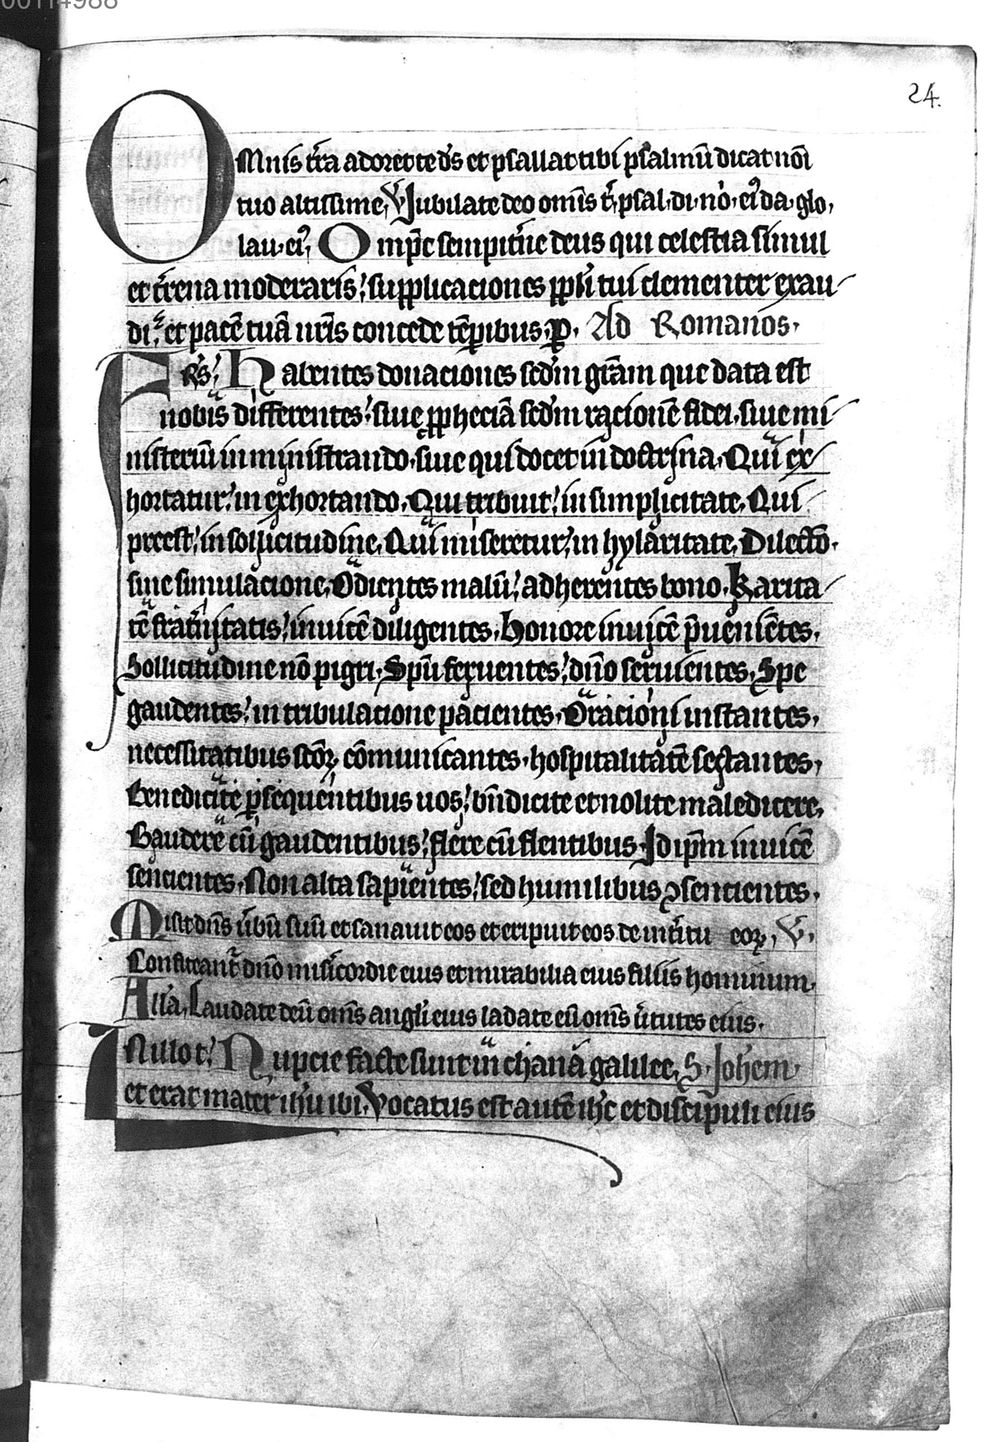 00114988
24.
OMnis t̄ra adoret te d̄s et psallat tibi psalmū dicat nōi
tuo altissime, V Jubilate deo om̄is t̄r, psal. di. no. ei da glo,
lau. ei, Omp̄e sempit̄ne deus qui celestia simul
et t̄rena moderaris, supplicaciones ppl̄i tui clementer exau
di, et pacē tuā nr̄is concede tēpibus. P. Ad Romanos.
Fr̄s, Habentes donaciones scdm̄ gr̄am que data est
nobis differentes, siue ppheciā scdm̄ racionē fidei. siue mi
nisteriū in ministrando. siue qui docet in doctrina, Qui ex
hortatur, in exhortando. Qui tribuit, in simplicitate, Qui
preest, in sollicitudine, Qui miseretur, in hylaritate, Dilectō.
sine simulacione, Odientes malū, adherentes bono. Karita
tē frat̄nitatis, inuicē diligentes. Honore inuicē p̄uenientes.
Sollicitudine nō pigri, Spū feruentes, dn̄o seruientes, Spe
gaudentes, in tribulacione pacientes. Oracioni instantes,
necessitatibus scōꝝ cōmunicantes. hospitalitatē sectantes,
Benedicite p̱sequentibus uos, bn̄dicite et nolite maledicere,
Gaudere cū gaudentibus, flere cū flentibus. Id ip̄m inuicē
sencientes, Non alta sapientes, sed humilibus ꝯsencientes.
Misit dn̄s ūbū suū et sanauit eos et eripuit eos de int̄itu eoꝝ, V.
Confiteant̄ dn̄o mis̄icordie eius et mirabilia eius filiis hominum.
All̄a, Laudate deū om̄s angl̄i eius ladate eū om̄s ūtutes eius.
IN illo t̄. Nupcie facte sunt in chana galilee, S. Johem.
et erat mater ih̄u ibi. Vocatus est autē ih̄c et discipuli eius